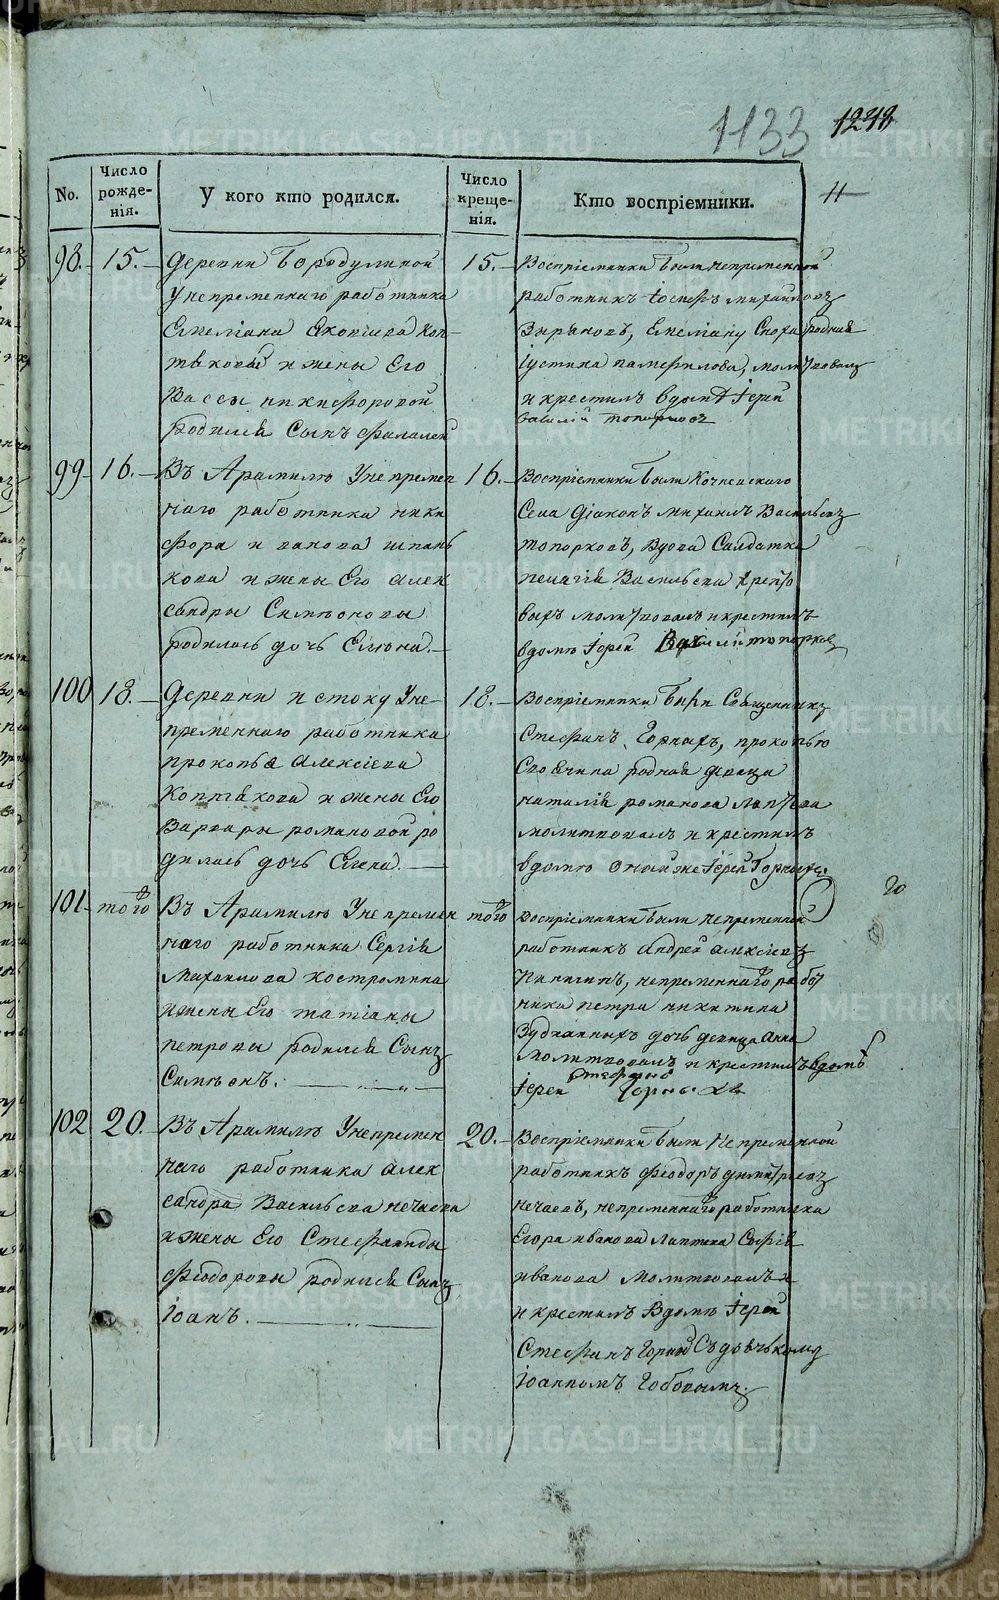 1133 1218
No.
Число рожде-нія.
У кого кто родился.
Число креще-нія.
Кто воспріемники.
98. 15.
деревни Бородулиной
у непременнаго работника
Емеліана
и жены Его
Вассы никифоровой
родился Сынъ фалалей
15.
Воспріемники были непременной
работникъ Іосифъ михаиловъ
Зыряновъ, Емеліану Сноха родная
Іустина памфилова, молитвовалъ
и крестилъ вдомѣ Іерей
василій топорковъ
99 16.
Въ Арамилѣ У непремен
наго работника ники
фора иванова шпань
кова и жены Его Алек
сандры Симеоновы
родилась дочь Елена.
16.
Воспріемники были Кочневскаго
Села діаконъ михаилъ Васильевъ
топорковъ, Вдова Салдатка
пелагія Васильева
молитвовалъ и крестилъ
вдомѣ Іерей Василій топорковъ
100 18.
Деревни истоку У не-
пременнаго работника
прокопья Алексіева
Коптякова и жены Его
Варвары романовой ро
дилась дочь Елена.
18.
Воспріемники были Священникъ
Стефанъ Горныхъ, прокопью
Своячина родная девица
наталія романова лаптева
молитвовалъ и крестилъ
вдомѣ оной же Іерей Горныхъ.
101 того
Въ Арамилѣ У непремен
наго работника Сергія
Михаилова костромина
и жены Его татіаны
петровы родился Сынъ
Симеонъ.
того
Воспріемники были непременной
работникъ андрей алексіевъ
непременнаго работ
ника петра никитина
дочь девица анна
молитвовалъ и крестилъ вдомѣ
Іерей Стефанъ Горныхъ
20
102 20.
Въ Арамилѣ У непремен
наго работника алек
сандра Васильева нечаева
и жены Его Стефаниды
феодоровы родился Сынъ
Іоанъ.
20.
Воспріемники были Непременной
работникъ феодоръ димитріевъ
нечаевъ, непременнаго работника
Егора иванова лаптева Софія
иванова молитвовалъ
и крестилъ Вдомѣ Іерей
Стефанъ Горныхъ Съ дьячькомъ
Іоанномъ
METRIKI.GASO-URAL.RU